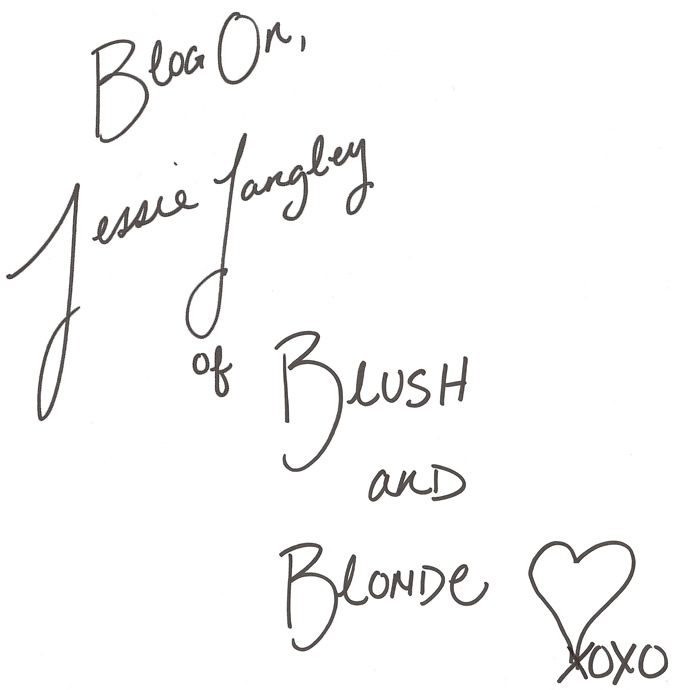 Blog On,
Jessie Langley
of Blush
and
Blonde
xoxo